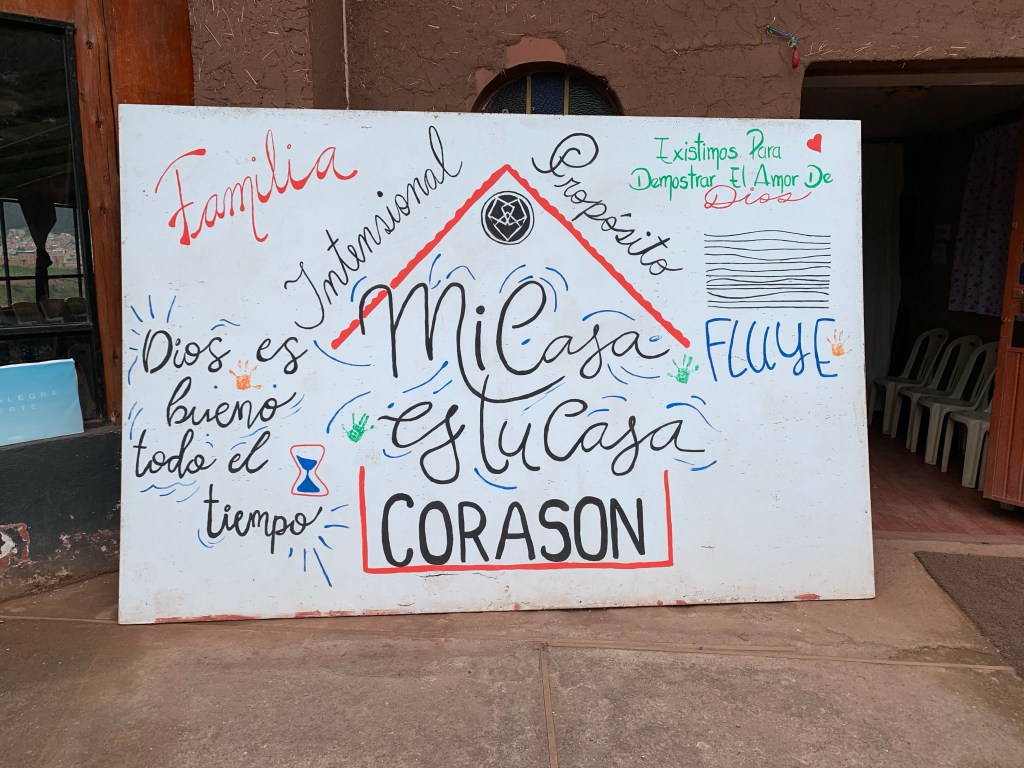 Familia
Intensional
Propósito
Existimos Para
Demostrar El Amor De
Dios
Mi Casa
es tu Casa
CORASON
Dios es
bueno
todo el
tiempo
FLUYE